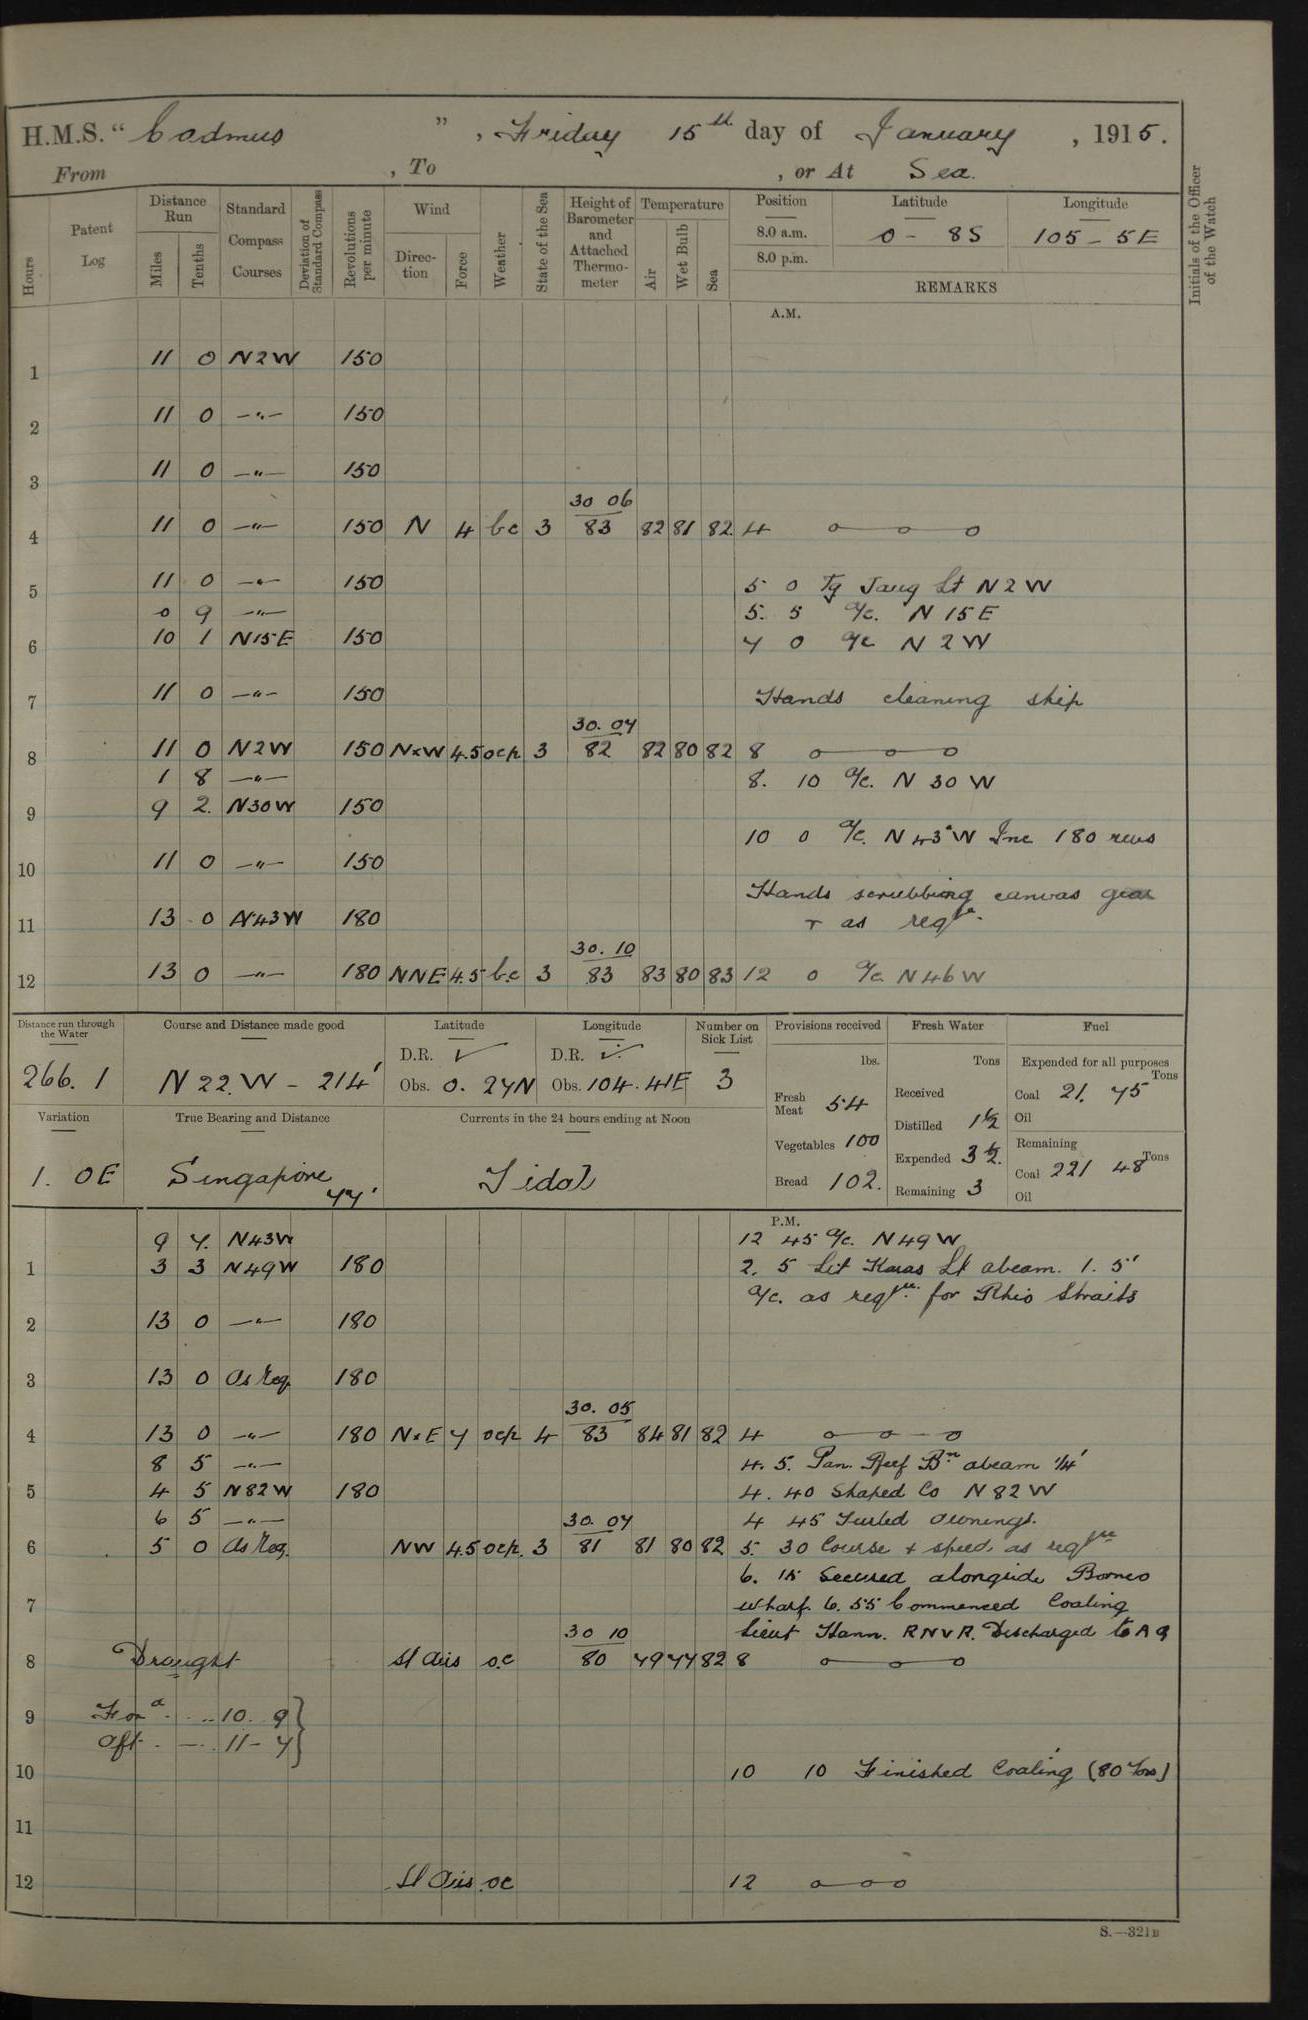 H.M.S. "Cadmus", Friday 15th day of January, 1915.
From , To , or At Sea.
Hours
Patent Log
Distance Run
Miles
Tenths
Standard Compass Courses
Deviation of Standard Compass
Revolutions per minute
Wind
Direction
Force
Weather
State of the Sea
Height of Barometer and Attached Thermometer
Temperature
Air
Wet Bulb
Sea
Position
Latitude
Longitude
8.0 a.m. 0 - 8S 105 - 5E
8.0 p.m.
REMARKS
Initials of the Officer of the Watch
A.M.
1 11 0 N2W 150
2 11 0 —"— 150
3 11 0 —"— 150
30 06
4 11 0 —"— 150 N 4 bc 3 83 82 81 82 4 o—o—o
5 11 0 —"— 150 5 0 Tg Jang Lt N2W
0 9 —"— 5. 5 a/c. N 15 E
6 10 1 N15E 150 7 0 a/c N 2 W
7 11 0 —"— 150 Hands cleaning ship
30.07
8 11 0 N2W 150 NxW 4.5 ocp 3 82 82 80 82 8 o—o—o
1 8 —"— 8. 10 a/c. N 30 W
9 9 2. N30W 150
10 0 a/c. N 43°W Inc 180 revs
10 11 0 —"— 150
Hands scrubbing canvas gear
11 13 0 N43W 180 + as reqre.
30.10
12 13 0 —"— 180 NNE 4.5 b.c 3 83 83 80 83 12 0 a/c N46W
Distance run through the Water
266.1
Course and Distance made good
N 22.W - 214'
Latitude
D.R. ✓
Obs. 0. 27N
Longitude
D.R. ✓
Obs. 104. 41E
Number on Sick List
3
Provisions received
lbs.
Fresh Meat 54
Vegetables 100
Bread 102.
Fresh Water
Tons
Received
Distilled 1½
Expended 3½.
Remaining 3
Fuel
Expended for all purposes
Tons
Coal 21. 75
Oil
Remaining
Tons
Coal 221 48
Oil
Variation
1. 0E
True Bearing and Distance
Singapore 77'
Currents in the 24 hours ending at Noon
Tidal
P.M.
9 7. N43W 12 45 a/c. N49W
1 3 3 N49W 180 2. 5 Lit Karas Lt abeam. 1. 5'
a/c. as reqre. for Rhio Straits
2 13 0 —"— 180
3 13 0 As Req. 180
30.05
4 13 0 —"— 180 NxE 4 ocp 4 83 84 81 82 4 o—o—o
8 5 —"— 4. 5. Pan. Reef Bn abeam ¼'
5 4 5 N82W 180 4. 40 Shaped Co N82W
6 5 —"— 30.07 4 45 Furled Awnings.
6 5 0 As Req. NW 4.5 ocp. 3 81 81 80 82 5. 30 Course + speed as reqre
6. 15 Secured alongside Borneo
7 Wharf. 6.55 Commenced Coaling
30 10 Lieut Hann. R.N.V.R. Discharged to
8 Draught Lt Airs o.c 80 79 77 82 8 o—o—o
9 For'd. - .. 10. 9
Aft. - — . 11 - 7
10 10 10 Finished Coaling (80 Tons)
11
12 Lt Airs oc 12 o—o—o
S.—321B